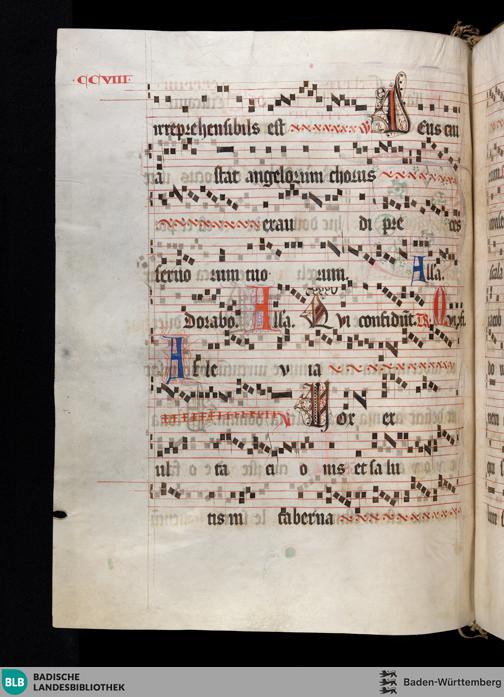 CCVIII
irreprehensibilis est V Deus cui
astat angelorum chorus
exau di pre ces
servo rum tuo rum. Alla.
Dorabo. Alla. Qui confidūt. R
Alle v ia
Vox ex
ul ta ci o nis et salu
tis in taberna
BLB BADISCHE LANDESBIBLIOTHEK
Baden-Württemberg